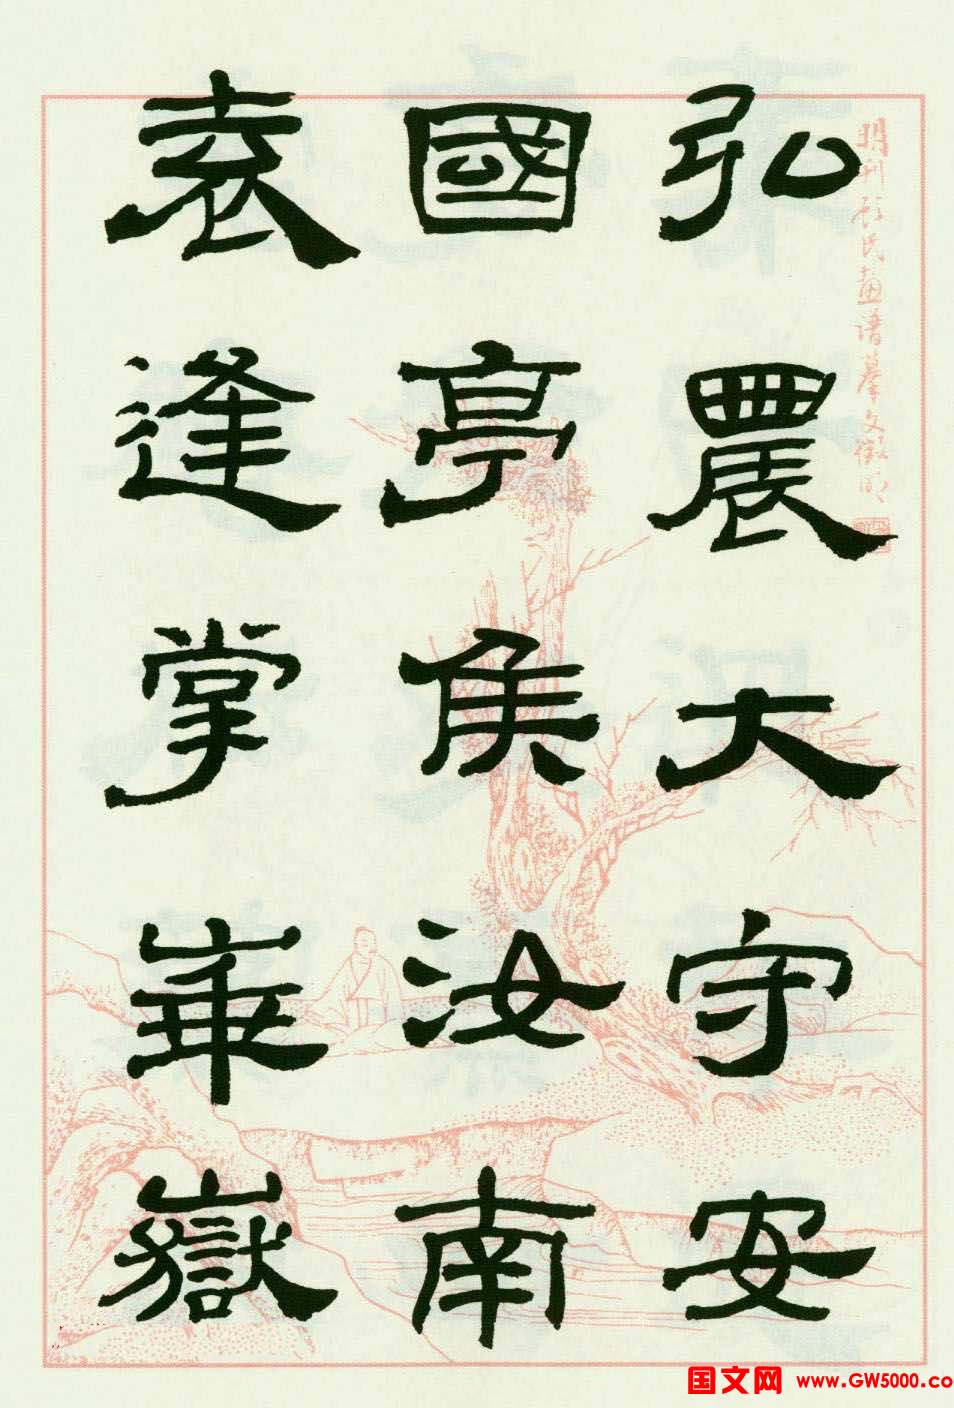 弘農大守安
國亭侯汝南
袁逢掌崋嶽
明刊顾氏画谱摹文徵明
国文网 www.GW5000.co